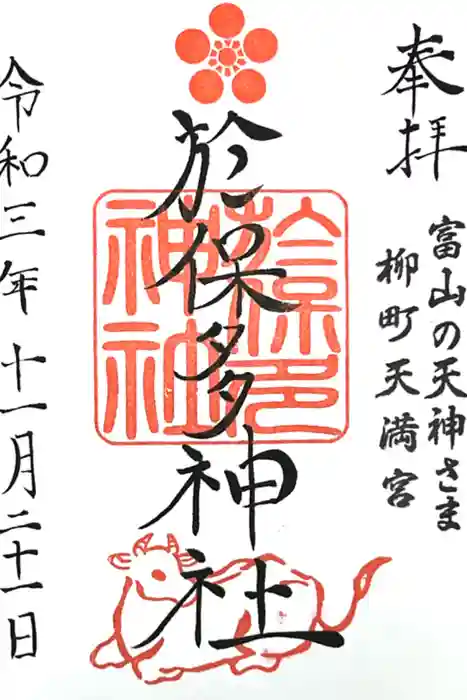 奉拝
富山の天神さま
柳町天満宮
於保多神社
令和三年十一月二十一日